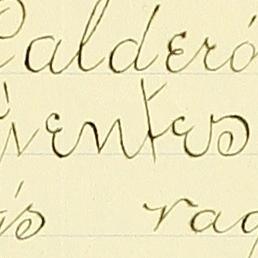 Calderó
ientes
ás raq